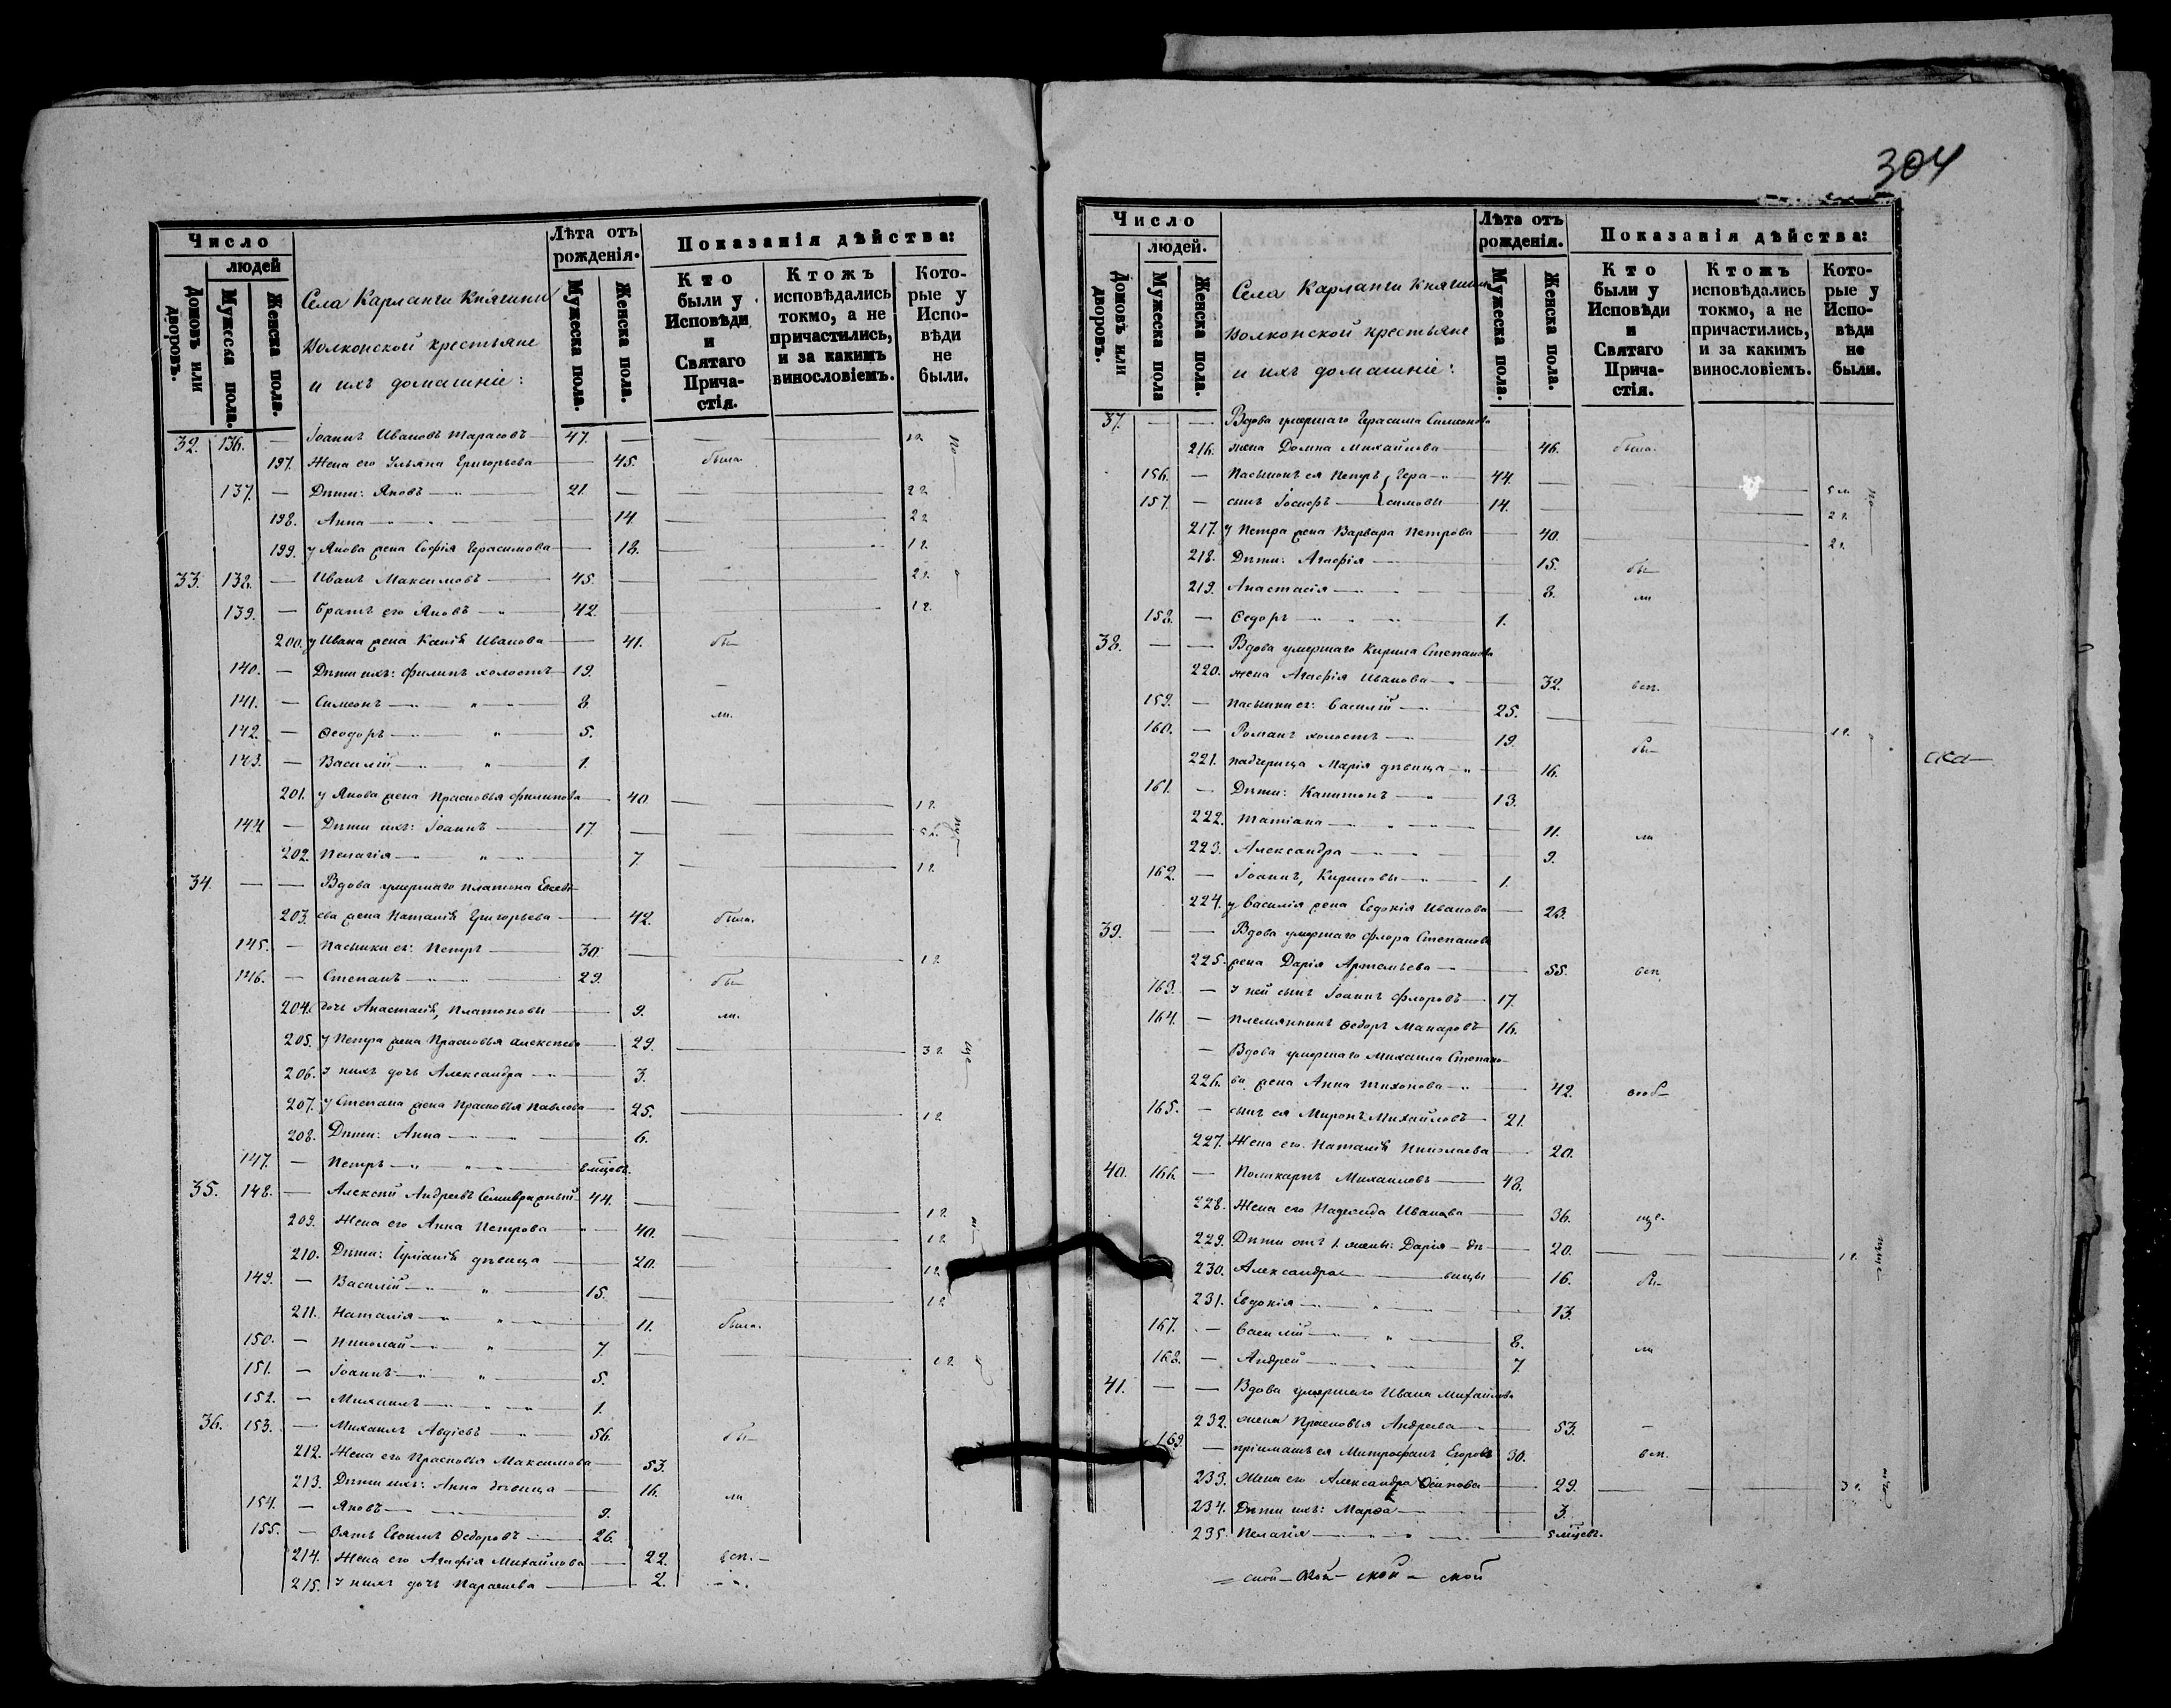 304
Число
людей
Домовъ или дворовъ.
Мужеска пола.
Женска пола.
Села Карланги Княгини
Волконской крестьяне
и ихъ домашніе:
Лѣта отъ рожденія.
Мужеска пола.
Женска пола.
Показанія дѣйства:
Кто были у Исповѣди и Святаго Прича-стія.
Ктожъ исповѣдались токмо, а не причастились, и за какимъ винословіемъ.
Кото-рые у Испо-вѣди не были.
32. 136. — Іоаннъ Ивановъ Тарасовъ 47. — 1 г.
197. Жена его Ульяна Григорьева — 45. была
137. — Дѣти: Яковъ 21. — 2 г.
198. Анна 14. 2 г.
199. у Якова жена Софія Герасимова — 18. 1 г.
33. 138. — Иванъ Максимовъ 45. — 2 г.
139. — братъ его Яковъ 42. 1 г.
200. у Ивана жена Ксенія Иванова — 41. бы—
140. — Дѣти ихъ: Филипъ холостъ 19.
141. — Симеонъ " 8 ли.
142. — Ѳеодоръ " 5.
143. — Василій " 1.
201. у Якова жена Прасковья Филипова — 40. 1 г.
144. — Дѣти ихъ: Іоаннъ 17. —
202. Пелагія " 7 1 г.
34. — — Вдова умершаго Платона Евсѣе-
203. ева жена Наталія Григорьева — 42. была.
145. — Пасынки ея: Петръ 30. — 1 г.
146. — Степанъ 29. бы—
204. дочь Анастасія, Платоновы — 9. ли.
205. у Петра жена Прасковья Алексѣева — 29. 3 г.
206. у нихъ дочь Александра 3.
207. у Степана жена Прасковья Павлова — 25. 1 г.
208. Дѣти: Анна 6.
147. — Петръ " 6 мцовъ.
35. 148. — Алексѣй Андреевъ 44. — 1 г.
209. Жена его Анна Петрова — 40. 1 г.
210. Дѣти: Іуліанія дѣвица 20. 1 г.
149. — Василій " 15. — 1 г.
211. Наталія " 11. была.
150. — Николай " 7. 1 г.
151. — Іоаннъ " 5.
152. — Михаилъ " 1.
36. 153. — Михаилъ Авдіевъ 56. бы—
212. Жена его Прасковья Максимова — 53.
213. Дѣти ихъ: Анна дѣвица 16. ли
154. — Яковъ 9.
155. — Зять Евѳимъ Ѳедоровъ 26.
214. Жена его Агафія Михайлова — 22. всп. —
215. у нихъ дочь Параскева — 2.
Число
людей.
Домовъ или дворовъ.
Мужеска пола
Женска пола.
Села Карланги Княгини
Волконской крестьяне
и ихъ домашніе:
Лѣта отъ рожденія.
Мужеска пола.
Женска пола.
Показанія дѣйства:
Кто были у Исповѣди и Святаго Прича-стія.
Ктожъ исповѣдались токмо, а не причастились, и за какимъ винословіемъ.
Кото-рые у Испо-вѣди не были.
37. — — Вдова умершаго Герасима Симеонова
216. жена Домна Михайлова 46. была.
156. — Пасынокъ ея Петръ Гера- 44. —
157. — сынъ Іосифъ симовы 14. — 2 г.
217. у Петра жена Варвара Петрова — 40. 2 г.
218. Дѣти: Агафія 15. бы—
219. Анастасія 8. ли
158. — Ѳедоръ 1.
38. — — Вдова умершаго Кирила Степанова
220. жена Агафія Иванова 32. всп.
159. — Пасынки ея: Василій 25. — 1 г.
160. — Романъ холостъ 19. бы—
221. падчерица Марія дѣвица 16.
161. — Дѣти: Капитонъ 13.
222. Татіана 11. ли
223. Александра 9.
162. — Іоаннъ, Кириловы 1.
224. у Василія жена Евдокія Иванова — 23.
39. — — Вдова умершаго Флора Степанова
225. жена Дарія Артемьева 55. всп
163. — У ней сынъ Іоаннъ Флоровъ 17.
164. — Племянникъ Ѳедоръ Макаровъ 16.
— Вдова умершаго Михаила Степано-
226. ва жена Анна Тихонова 42.
165. — сынъ ея Миронъ Михайловъ 21.
227. Жена его Наталія Николаева 20.
40. 166. — Поликарпъ Михаиловъ 48.
228. Жена его Надежда Иванова 36.
229. Дѣти отъ 1. жены: Дарія — дѣ- 20. — 1 г.
230. Александра вицы 16. бы—
231. Евдокія 13.
167. — Василій " 8. ли
168. — Андрей 7
41. — — Вдова умершаго Ивана Михайлова
232. жена Прасковья Андреева 53.
169. — пріимашъ ея Митрофанъ Егоровъ 30. всп.
233. Жена его Александра Осипова 29. — 3 г.
234. Дѣти ихъ: Марѳа 3.
235. Пелагія 5 мцевъ.
ска—
— ской — ской — ской — ской